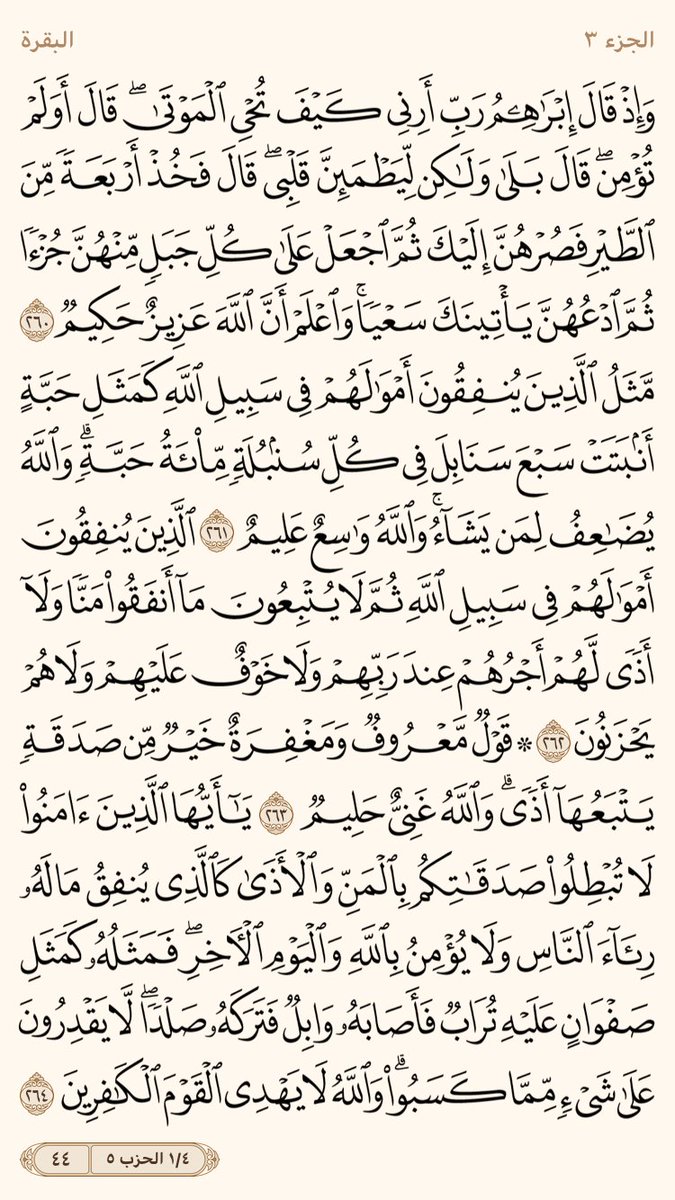 الجزء ٣
البقرة
وَإِذْ قَالَ إِبْرَٰهِـۧمُ رَبِّ أَرِنِى كَيْفَ تُحْىِ ٱلْمَوْتَىٰ ۖ قَالَ أَوَلَمْ
تُؤْمِن ۖ قَالَ بَلَىٰ وَلَـٰكِن لِّيَطْمَئِنَّ قَلْبِى ۖ قَالَ فَخُذْ أَرْبَعَةً مِّنَ
ٱلطَّيْرِ فَصُرْهُنَّ إِلَيْكَ ثُمَّ ٱجْعَلْ عَلَىٰ كُلِّ جَبَلٍ مِّنْهُنَّ جُزْءًا
ثُمَّ ٱدْعُهُنَّ يَأْتِينَكَ سَعْيًا ۚ وَٱعْلَمْ أَنَّ ٱللَّهَ عَزِيزٌ حَكِيمٌ ٢٦٠
مَّثَلُ ٱلَّذِينَ يُنفِقُونَ أَمْوَٰلَهُمْ فِى سَبِيلِ ٱللَّهِ كَمَثَلِ حَبَّةٍ
أَنۢبَتَتْ سَبْعَ سَنَابِلَ فِى كُلِّ سُنۢبُلَةٍ مِّا۟ئَةُ حَبَّةٍ ۗ وَٱللَّهُ
يُضَـٰعِفُ لِمَن يَشَآءُ ۚ وَٱللَّهُ وَٰسِعٌ عَلِيمٌ ٢٦١ ٱلَّذِينَ يُنفِقُونَ
أَمْوَٰلَهُمْ فِى سَبِيلِ ٱللَّهِ ثُمَّ لَا يُتْبِعُونَ مَآ أَنفَقُوا۟ مَنًّا وَلَآ
أَذًى لَّهُمْ أَجْرُهُمْ عِندَ رَبِّهِمْ وَلَا خَوْفٌ عَلَيْهِمْ وَلَا هُمْ
يَحْزَنُونَ ٢٦٢ ۞ قَوْلٌ مَّعْرُوفٌ وَمَغْفِرَةٌ خَيْرٌ مِّن صَدَقَةٍ
يَتْبَعُهَآ أَذًى ۗ وَٱللَّهُ غَنِىٌّ حَلِيمٌ ٢٦٣ يَـٰٓأَيُّهَا ٱلَّذِينَ ءَامَنُوا۟
لَا تُبْطِلُوا۟ صَدَقَـٰتِكُم بِٱلْمَنِّ وَٱلْأَذَىٰ كَٱلَّذِى يُنفِقُ مَالَهُۥ
رِئَآءَ ٱلنَّاسِ وَلَا يُؤْمِنُ بِٱللَّهِ وَٱلْيَوْمِ ٱلْـَٔاخِرِ ۖ فَمَثَلُهُۥ كَمَثَلِ
صَفْوَانٍ عَلَيْهِ تُرَابٌ فَأَصَابَهُۥ وَابِلٌ فَتَرَكَهُۥ صَلْدًا ۖ لَّا يَقْدِرُونَ
عَلَىٰ شَىْءٍ مِّمَّا كَسَبُوا۟ ۗ وَٱللَّهُ لَا يَهْدِى ٱلْقَوْمَ ٱلْكَـٰفِرِينَ ٢٦٤
١/٤ الحزب ٥
٤٤